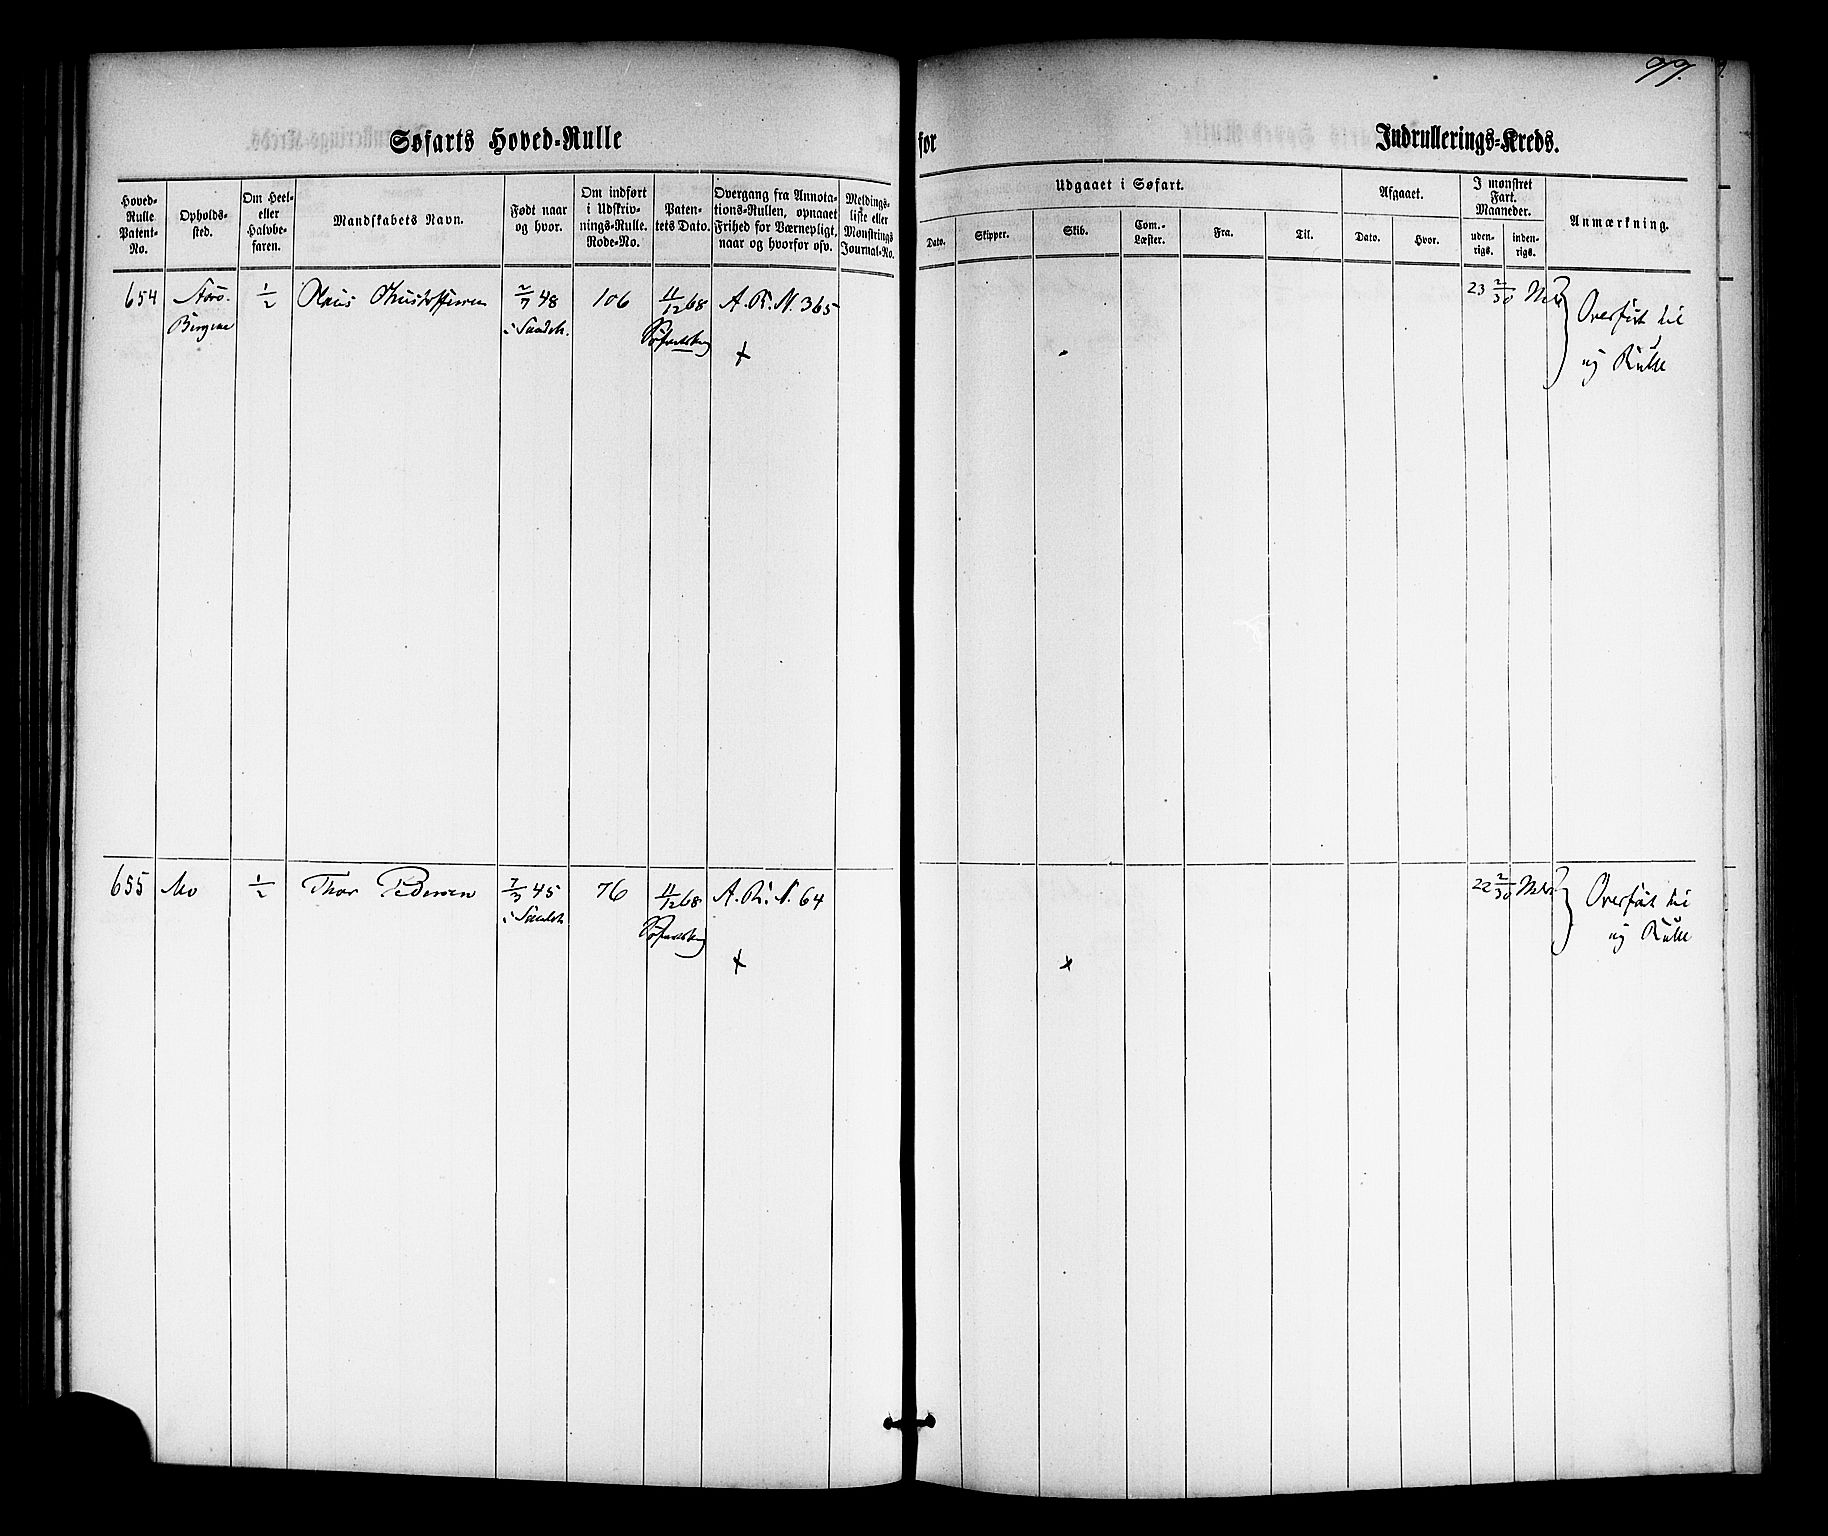 99.
Søfarts Hoved-Rulle
for
Indrullerings-Kreds.
Hoved-
Rulle
Patent-
No.
Opholds-
sted.
Om Heel-
eller
Halvbe-
faren.
Mandskabets Navn.
Født naar
og hvor.
Om indført
i Udskriv-
nings-Rulle.
Rode-No.
Paten-
tets Dato.
Overgang fra Annota-
tions-Rullen, opnaaet
Frihed for Værnepligt,
naar og hvorfor osv.
Meldings-
liste eller
Mønstrings
Journal-No.
Udgaaet i Søfart.
Dato.
Skipper.
Skib.
Com.-
Læster.
Fra.
Til.
Afgaaet.
Dato.
Hvor.
I mønstret
Fart.
Maaneder.
uden-
rigs.
inden-
rigs.
Anmærkning.
654
Bergene
1/2
Claus Christoffersen
2/7 48
i Sandeh.
106
11/12 68
A. R. N. 365
+
23 2/30 Mdr
Overført til
ny Rulle
655
Mo
1/2
Thor Pedersen
7/3 45
i Sandeh
76
11/12 68
A. R. N. 64
+
x
22 2/30 Mdr
Overført til
ny Rulle